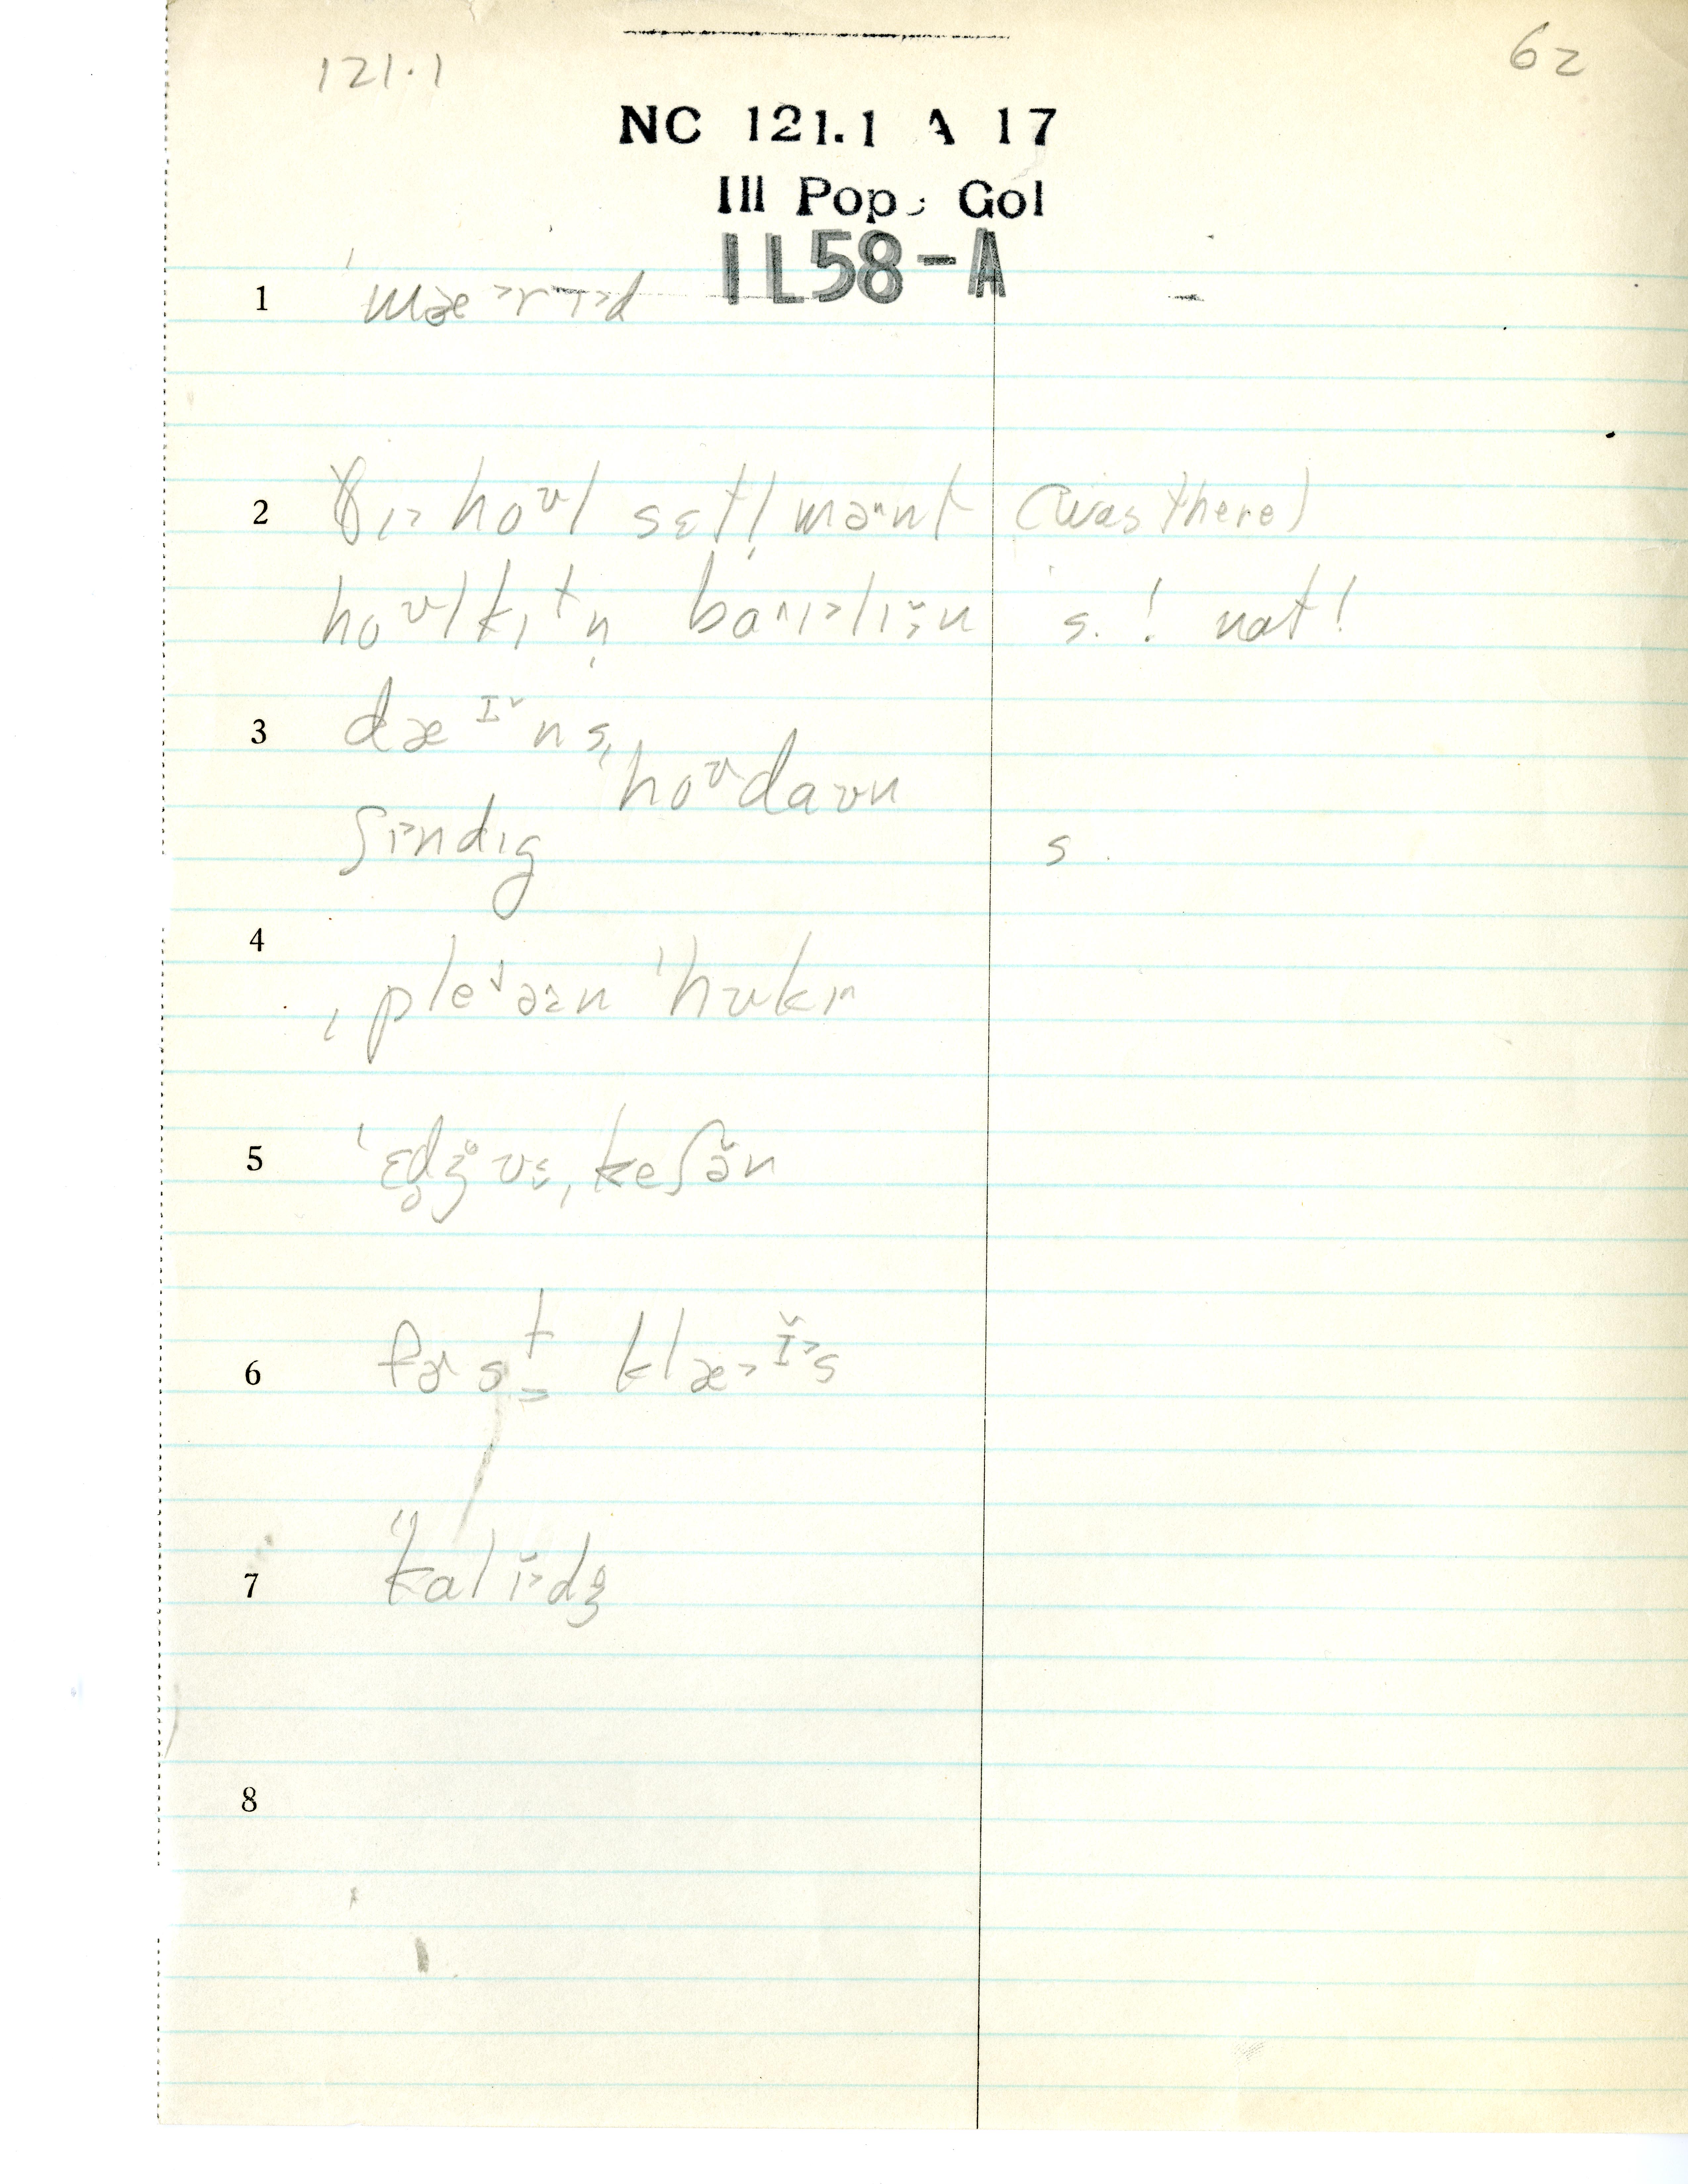 121.1
62
NC 121.1 A 17
Ill Pop, Gol
IL58-A
1 ˈmæ˃rɪ˃d
2 ðɪ˃ hoʊl sɛtl̩mənt (was there)
hoʊl kɪtn̩ s. ! not!
3 dæɪ̌ns, ˈhoʊdaʊn
ʃɪ˃ndɪg s.
4 ˌple ˈhʊkɪ
5 ˈɛdʒʊˌkeʃə̌n
6 fɚst klæ˃ɪ̌˃s
7 ˈkalɪ̌˃dʒ
8